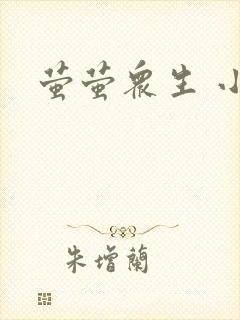 萤萤眾生 小
朱增蘭